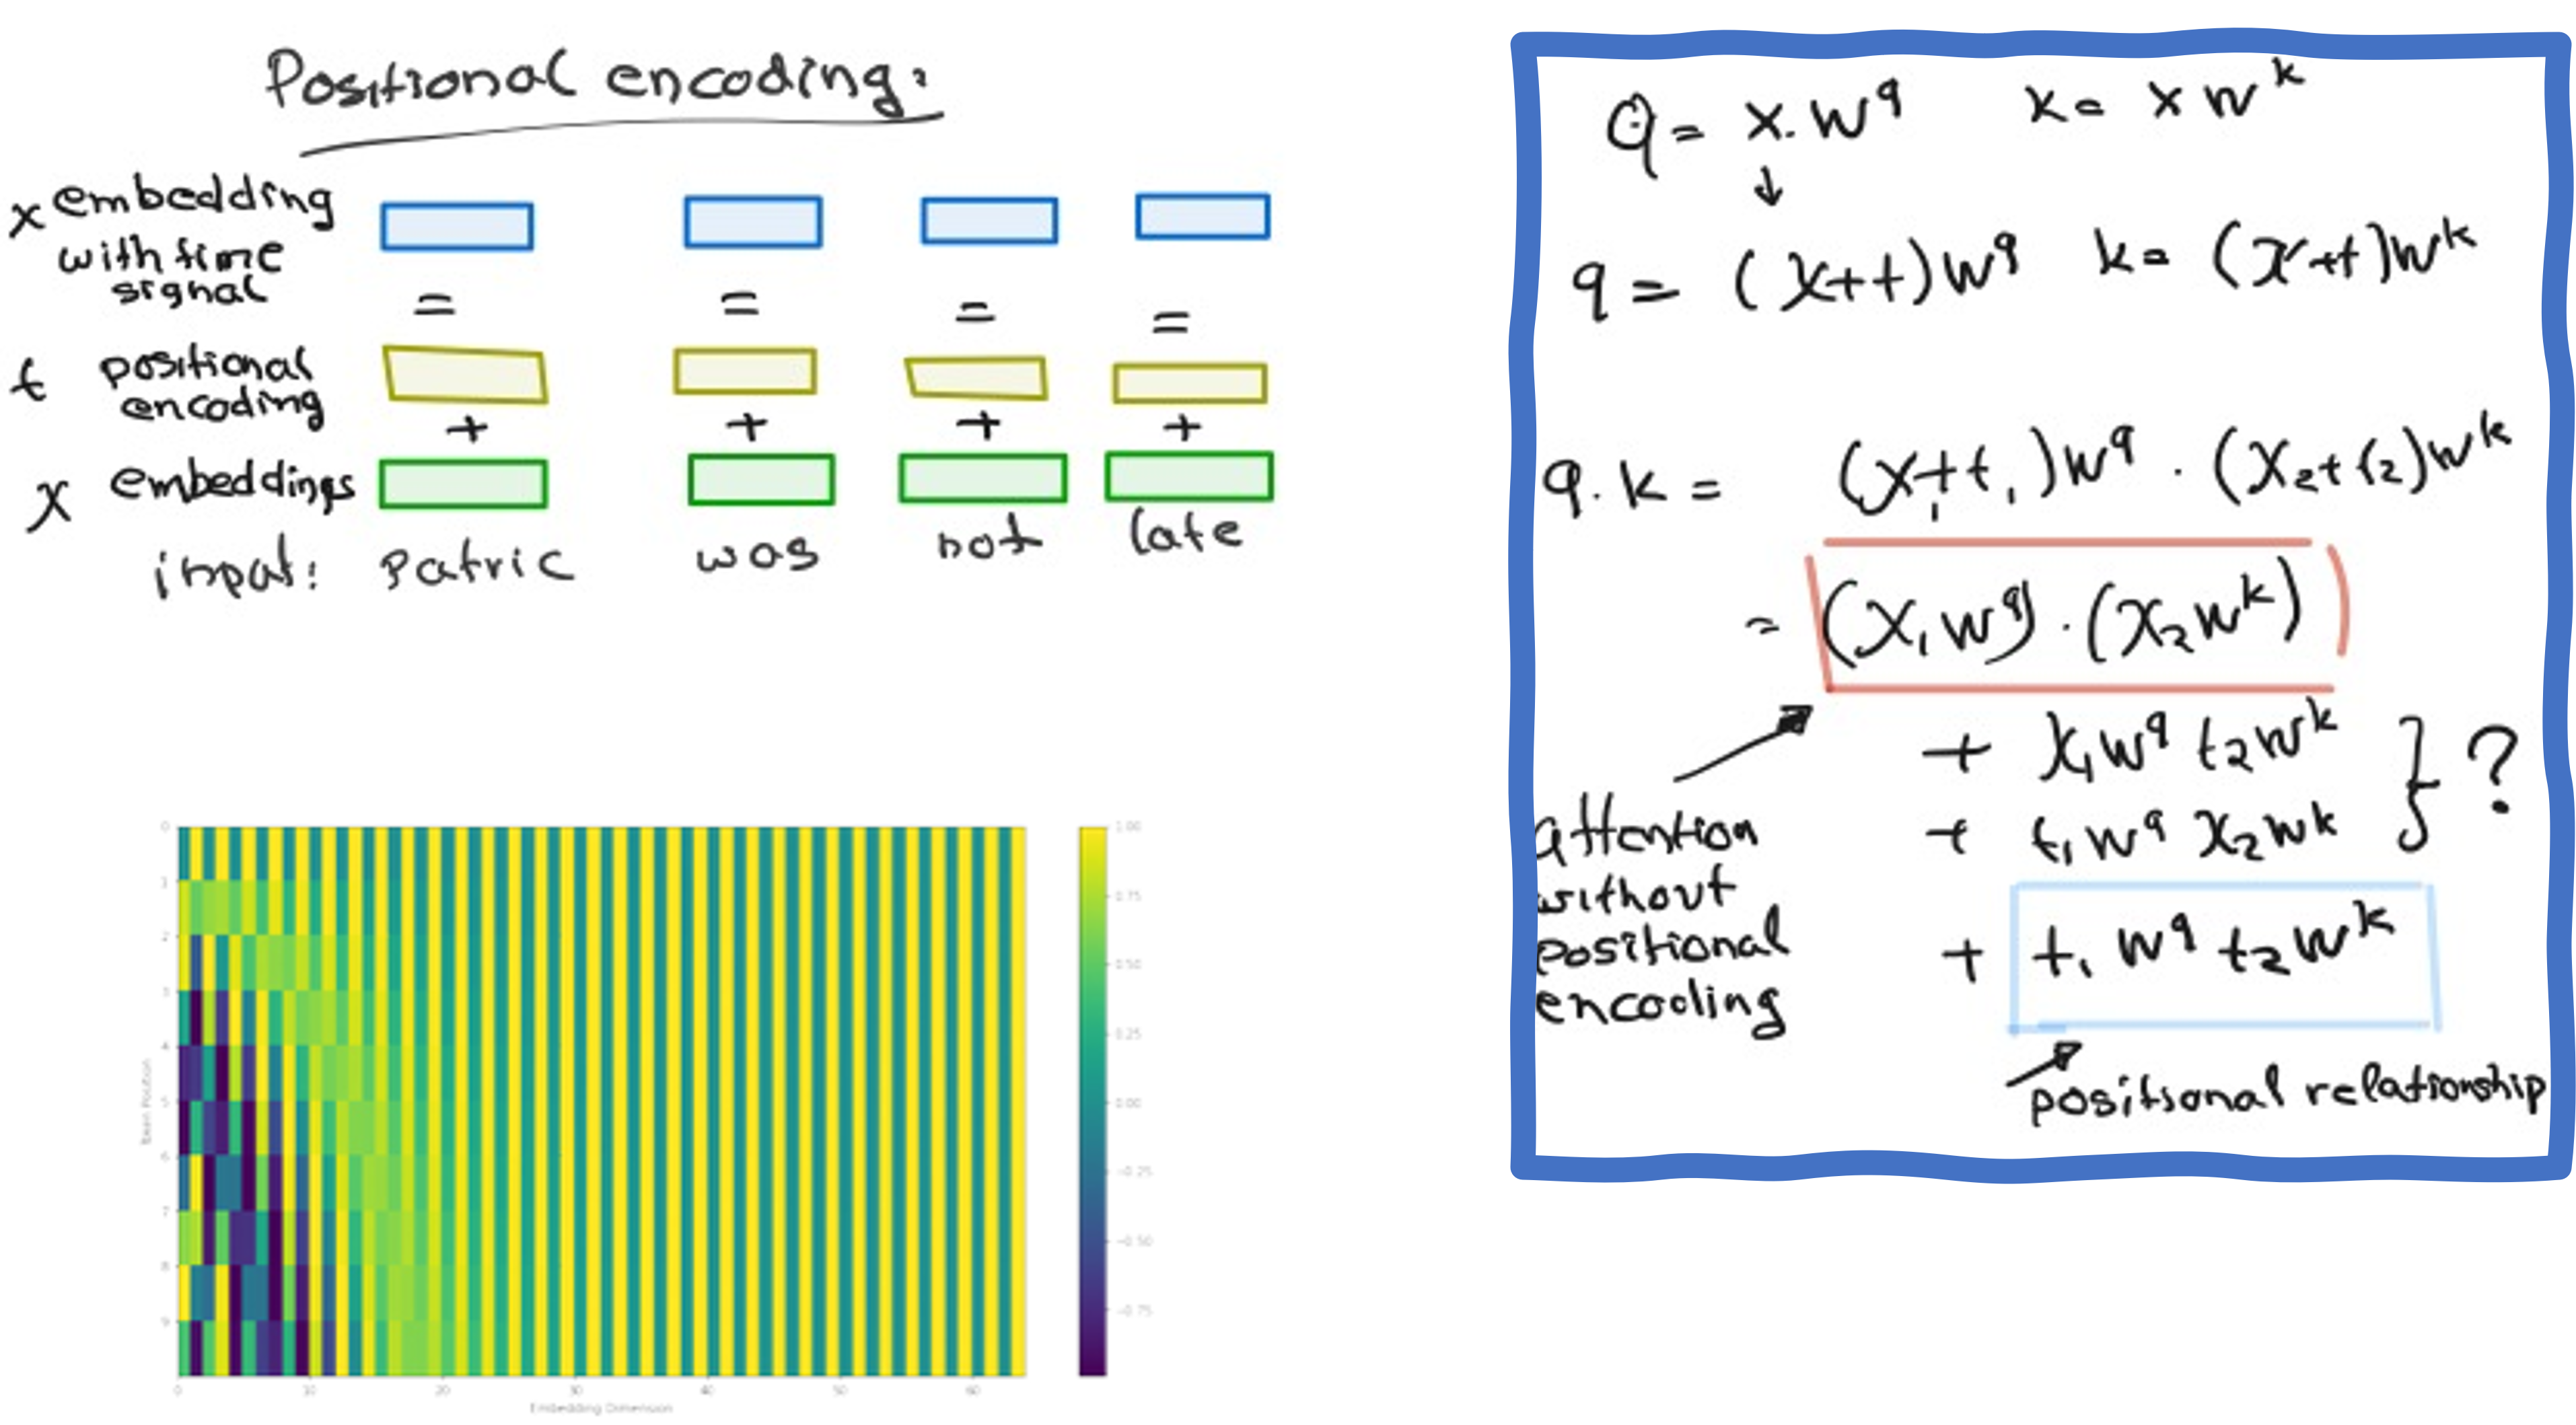 Positional encoding:
x embedding
with time
signal
= = = =
t positional
encoding
+ + + +
x embeddings
input: Patric was not late
0
1
2
3
4
5
6
7
8
9
Token Position
0 10 20 30 40 50 60
Embedding Dimension
1.00
0.75
0.50
0.25
0.00
-0.25
-0.50
-0.75
Q = x. W^q k = x W^k
↓
q = (x+t)W^q k = (x+t)W^k
q.k = (x₁+t₁)W^q . (x₂+t₂)W^k
= (x₁W^q) . (x₂W^k)
+ x₁W^q t₂W^k } ?
+ t₁W^q x₂W^k
+ t₁ W^q t₂ W^k
attention
without
positional
encoding
positional relationship